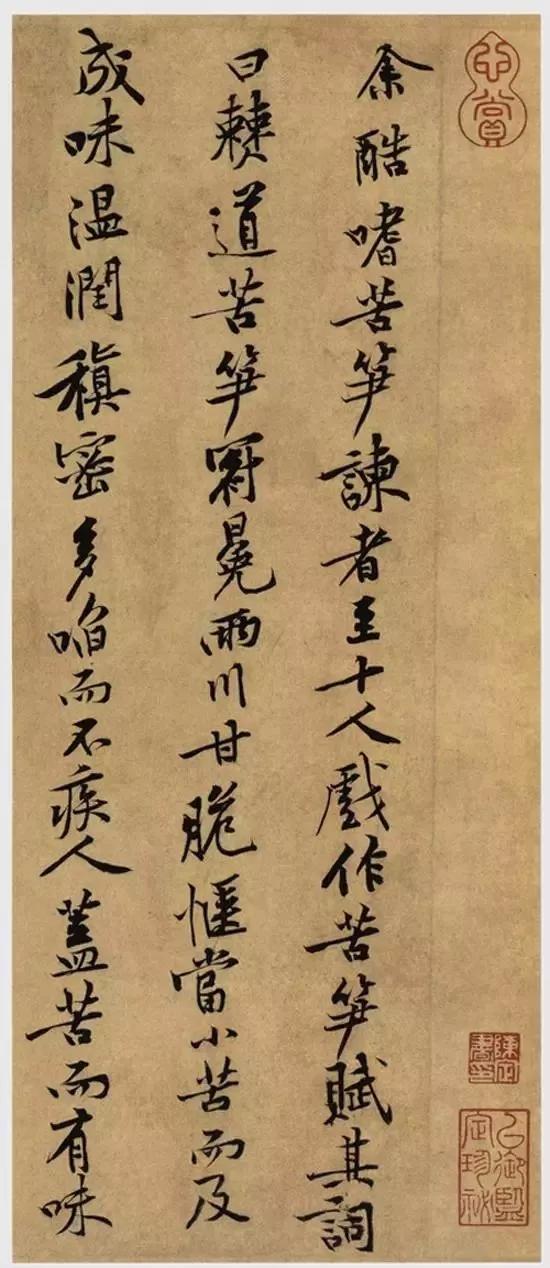 余酷嗜苦笋諫者至十人戲作苦笋賦其詞
曰僰道苦笋冠冕兩川甘脆愜當小苦而及
成味温潤稹密多啗而不疾人蓋苦而有味